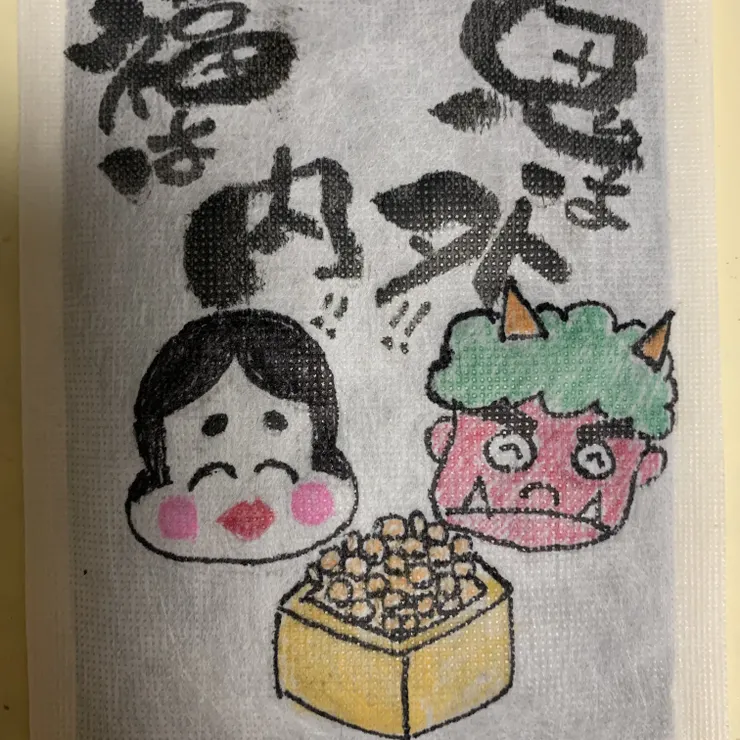 鬼は
外!!
福は
内!!